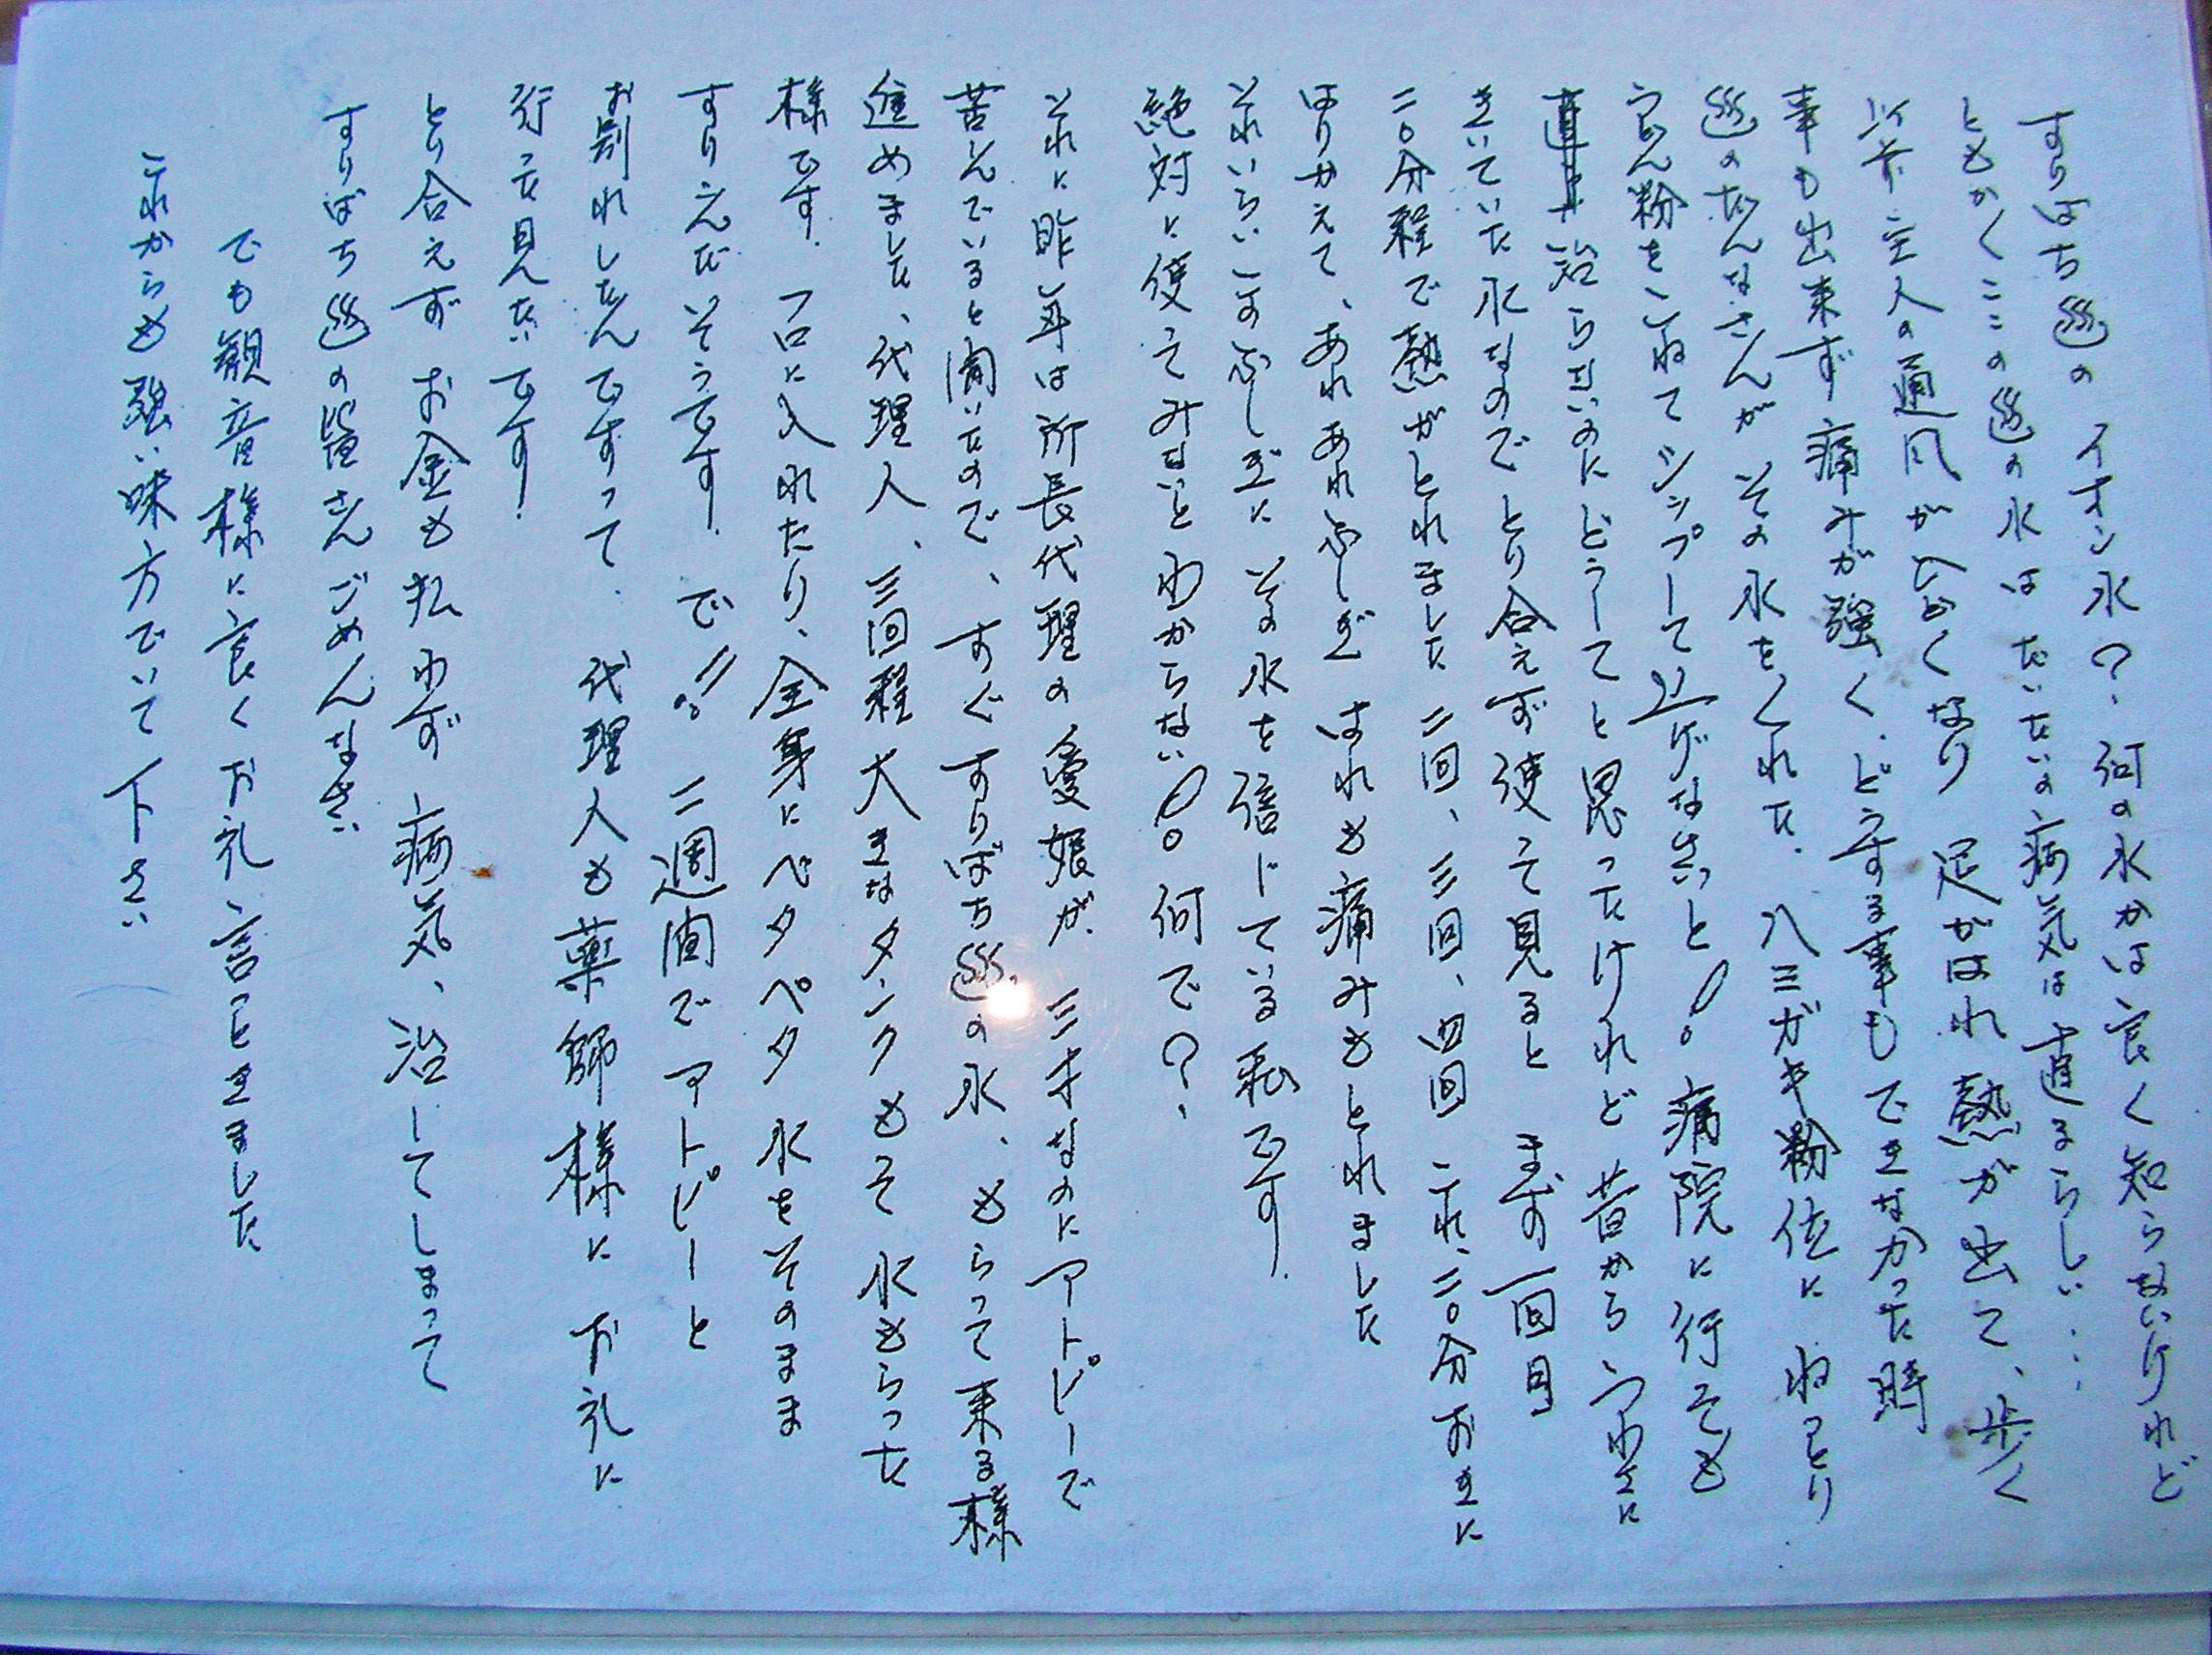 すりばち巡のイオン水？何の水かは良く知らないけれど
ともかくここの巡の水はたいたいの病気は直るらしい・・・
以前主人の通風がひどくなり足がはれ熱が出て、歩く
事も出来ず痛みが強く、どうする事もできなかった時
巡のだんなさんがその水をくれた. ハミガキ粉位にねっとり
うどん粉をこねてシップして上げなさいと！痛院に行そも
直ヰナ治らないのにどうしてと思ったけれど昔からうわさに
きいていた水なのでとり合えず使って見るとまず一回目
二〇分程で熱がとれました二回、三回、四回これ、二〇分おきに
はりかえて、あれあれふしぎはれも痛みもとれました
それいらいこのふしぎにその水を信じている私です.
絶対に使ってみないとわからない！何で？.
それに昨年は所長代理の愛娘が、三才なのにアトピーで
苦しんでいると聞いたので、すぐすりばち巡の水、もらって来る様
進めました、代理人、三回程大きなタンクもそ水もらった
様です. フロに入れたり、全身にペタペタ水をそのまま
すりえだそうです. で!! 二週間でアトピーと
お別れしたんですって. 代理人も薬師様にお礼に
行った見たいです!
とり合えずお金も払わず病気、治してしまって
すりばち巡の皆さんごめんなさい
でも観音様に良くお礼言っときました
これからも強い味方でいて下さい